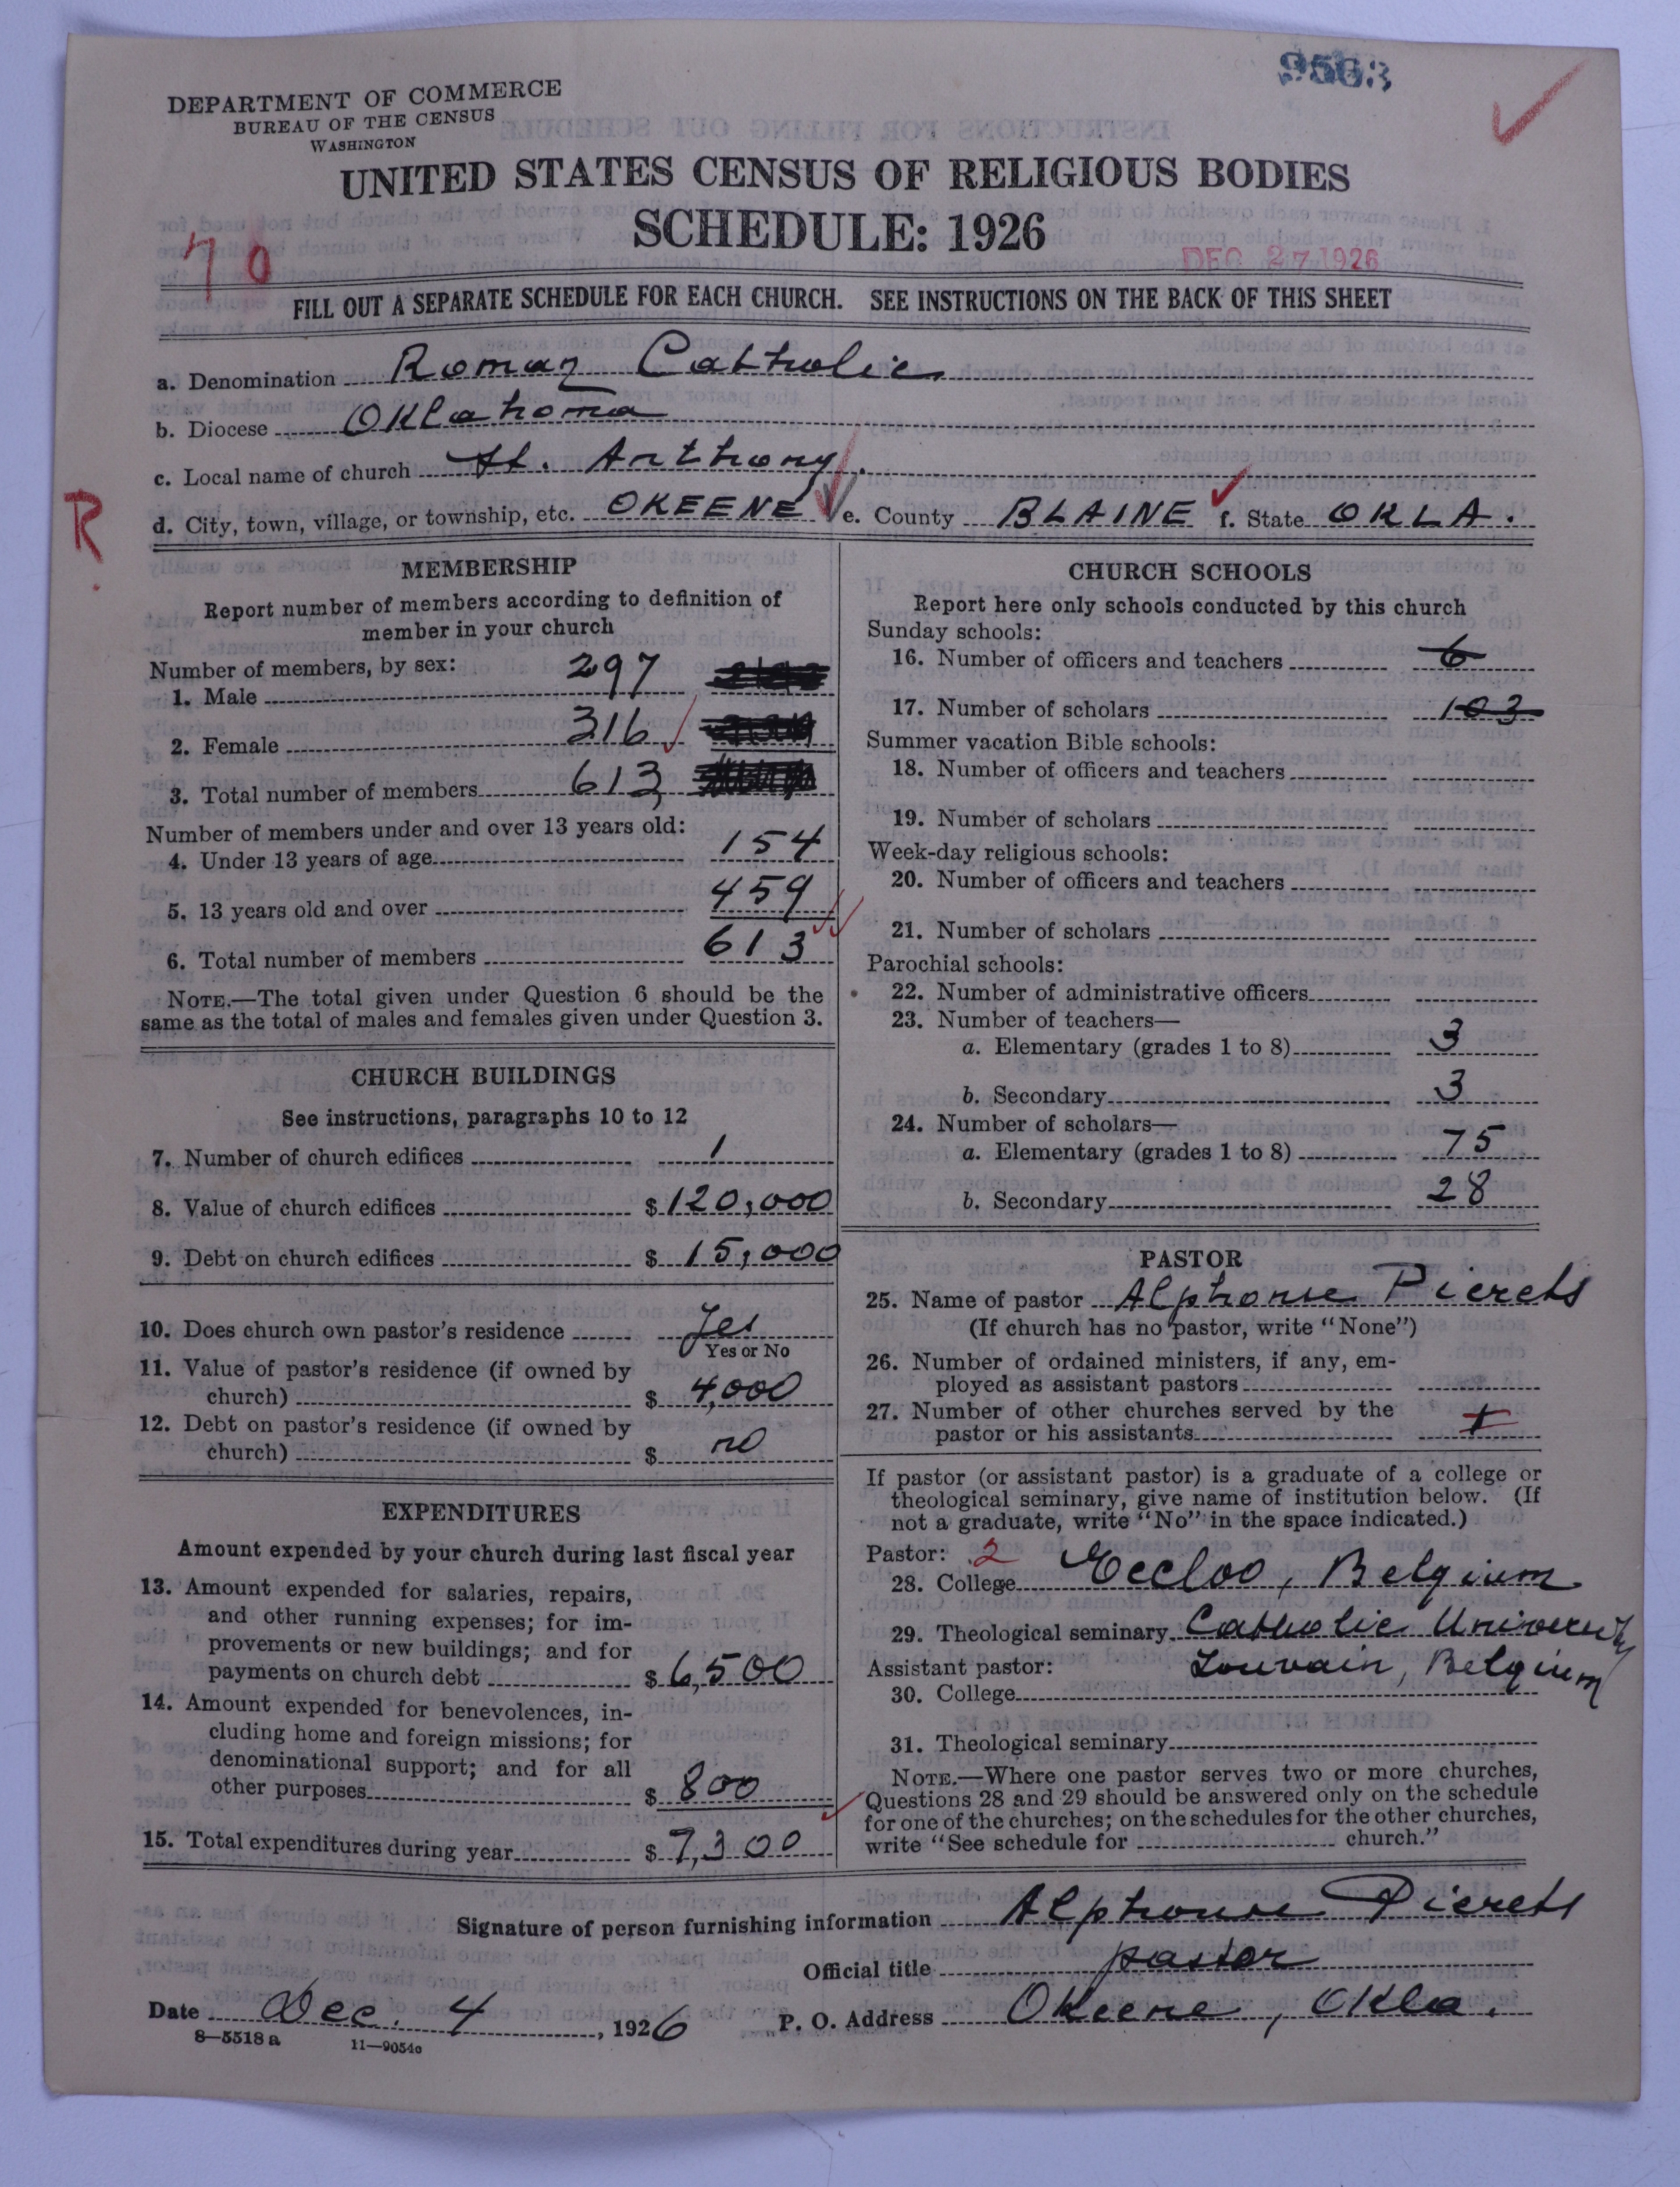 9563
DEPARTMENT OF COMMERCE
BUREAU OF THE CENSUS
WASHINGTON
UNITED STATES CENSUS OF RELIGIOUS BODIES
SCHEDULE: 1926
70
DEC 27 1926
FILL OUT A SEPARATE SCHEDULE FOR EACH CHURCH. SEE INSTRUCTIONS ON THE BACK OF THIS SHEET
a. Denomination Roman Catholic
b. Diocese Oklahoma
c. Local name of church St. Anthony.
R.
d. City, town, village, or township, etc. OKEENE e. County BLAINE f. State OKLA.
MEMBERSHIP
Report number of members according to definition of
member in your church
Number of members, by sex:
1. Male 297
2. Female 316
3. Total number of members 613
Number of members under and over 13 years old:
4. Under 13 years of age 154
5. 13 years old and over 459
6. Total number of members 613
NOTE.—The total given under Question 6 should be the
same as the total of males and females given under Question 3.
CHURCH BUILDINGS
See instructions, paragraphs 10 to 12
7. Number of church edifices 1
8. Value of church edifices $ 120,000
9. Debt on church edifices $ 15,000
10. Does church own pastor's residence Yes
Yes or No
11. Value of pastor's residence (if owned by
church) $ 4,000
12. Debt on pastor's residence (if owned by
church) $ no
EXPENDITURES
Amount expended by your church during last fiscal year
13. Amount expended for salaries, repairs,
and other running expenses; for im-
provements or new buildings; and for
payments on church debt $ 6,500
14. Amount expended for benevolences, in-
cluding home and foreign missions; for
denominational support; and for all
other purposes $ 800
15. Total expenditures during year $ 7,300
CHURCH SCHOOLS
Report here only schools conducted by this church
Sunday schools:
16. Number of officers and teachers 6
17. Number of scholars 103
Summer vacation Bible schools:
18. Number of officers and teachers
19. Number of scholars
Week-day religious schools:
20. Number of officers and teachers
21. Number of scholars
Parochial schools:
22. Number of administrative officers
23. Number of teachers—
a. Elementary (grades 1 to 8) 3
b. Secondary 3
24. Number of scholars—
a. Elementary (grades 1 to 8) 75
b. Secondary 28
PASTOR
25. Name of pastor Alphonse Pierets
(If church has no pastor, write "None")
26. Number of ordained ministers, if any, em-
ployed as assistant pastors
27. Number of other churches served by the
pastor or his assistants
If pastor (or assistant pastor) is a graduate of a college or
theological seminary, give name of institution below. (If
not a graduate, write "No" in the space indicated.)
Pastor: 2
28. College Eecloo, Belgium
29. Theological seminary Catholic University
Assistant pastor: Louvain, Belgium
30. College
31. Theological seminary
NOTE.—Where one pastor serves two or more churches,
Questions 28 and 29 should be answered only on the schedule
for one of the churches; on the schedules for the other churches,
write "See schedule for church."
Signature of person furnishing information Alphonse Pierets
Official title pastor
Date Dec. 4, 1926 P. O. Address Okeene, Okla.
8—5518 a 11—9054c